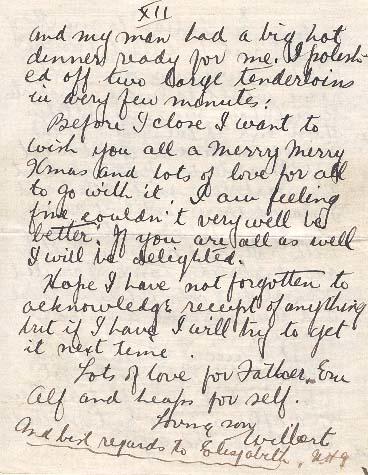 XII
and my man had a big hot
dinner ready for me. I polish-
ed off two large tenderloins
in a very few minutes.
Before I close I want to
wish you all a Merry Merry
Xmas and lots of love for all
to go with it. I am feeling
fine, couldn't very well be
better. If you are all as well
I will be delighted.
Hope I have not forgotten to
acknowledge receipt of anything
but if I have I will try to get
it next time.
Lots of love for Father,
Alf and heaps for self.
Loving son
Wilbert
And best regards to Elizabeth,